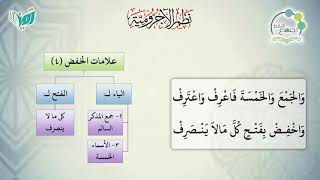 نظم الآجرومية
علامات الخفض (٤)
الياء لـ:
الفتح لـ:
٢- جمع المذكر السالم
٣- الأسماء الخمسة
كل ما لا ينصرف
وَالجَمْعَ وَالخَمْسَةَ فَاعْرِفْ وَاعْتَرِفْ
وَاخْفِضْ بِفَتْحٍ كُلَّ مَالاَ يَنْصَرِفْ